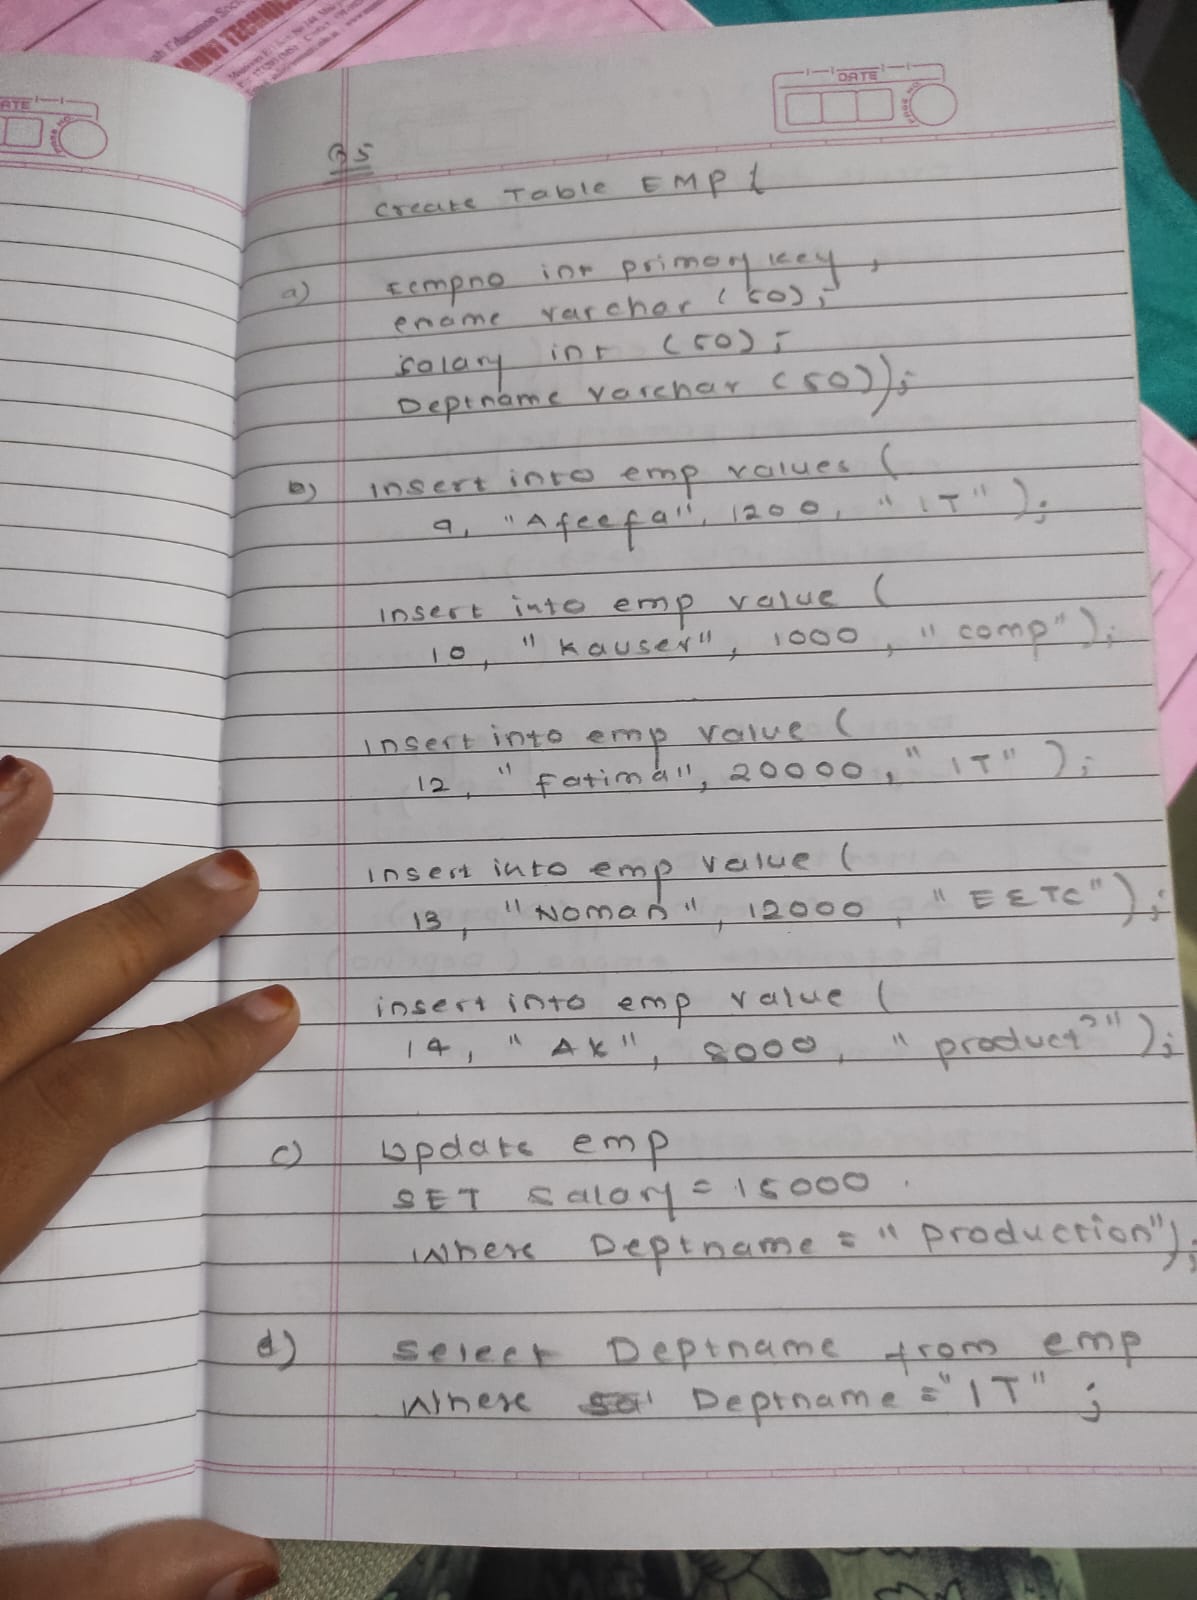 DATE
DATE
Q5
Create Table EMP {
a) Eempno int primary key,
ename varchar (50);
salary int (50);
Deptname varchar (50));
b) insert into emp values (
9, "Afeefa", 1200, "IT");
insert into emp value (
10, "Kauser", 1000, "comp");
insert into emp value (
12, "fatima", 20000, "IT");
insert into emp value (
13, "Noman", 12000, "EETC");
insert into emp value (
14, "AK", 8000, "product");
c) Update emp
SET salary = 15000.
Where Deptname = "production");
d) select Deptname from emp
Where Deptname = "IT";